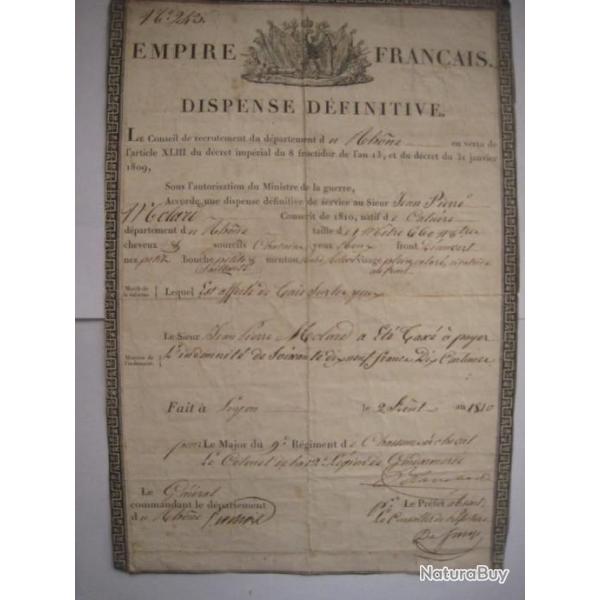 EMPIRE FRANÇAIS.
DISPENSE DÉFINITIVE.
LE Conseil de recrutement du département du Rhône en vertu de
l'article XLIII du décret impérial du 8 fructidor de l'an 13, et du décret du 31 janvier
1809,
Sous l'autorisation du Ministre de la guerre,
Accorde une dispense définitive de service au Sieur Jean Pierre
Molard Conscrit de 1810, natif de
département du Rhône taille d'1 mètre 660 m
cheveux & sourcils yeux front
nez petit bouche petite menton visage
Motifs de la réforme. Lequel Est affecté de sur les yeux
Le Sieur Jean Pierre Molard a Eté Taxé à payer
Montant de l'indemnité. L'indemnité de Soixante dix neuf francs Dix Centimes
Fait à Lyon le 2 Août an 1810
pour Le Major du 9e Régiment de Chasseurs à cheval
Le Colonel de la Légion de Gendarmerie
Le Général
commandant le département
du Rhône
Pr. Le Préfet absent
Le Conseiller de Préfecture
NaturaBuy